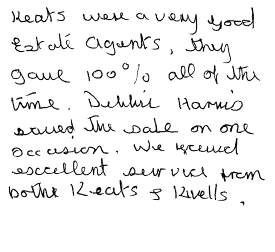 Keats were a very good
Estate Agents, they
gave 100% all of the
time. Debbie Harris
saved the sale on one
occasion. We received
excellent service from
bothe Keats & Kwells.